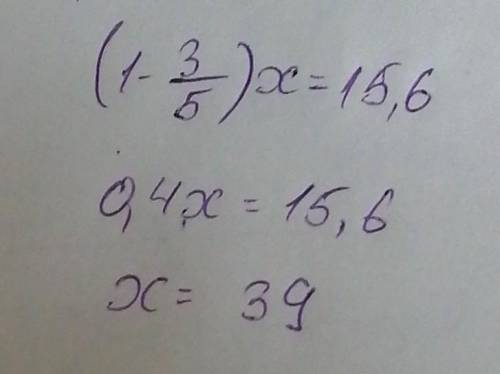 (1 - 3/5)x = 15,6
0,4x = 15,6
x = 39